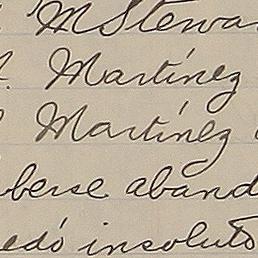 M Stewar
. Martínez
Martínez
berse aband
edó insoluto